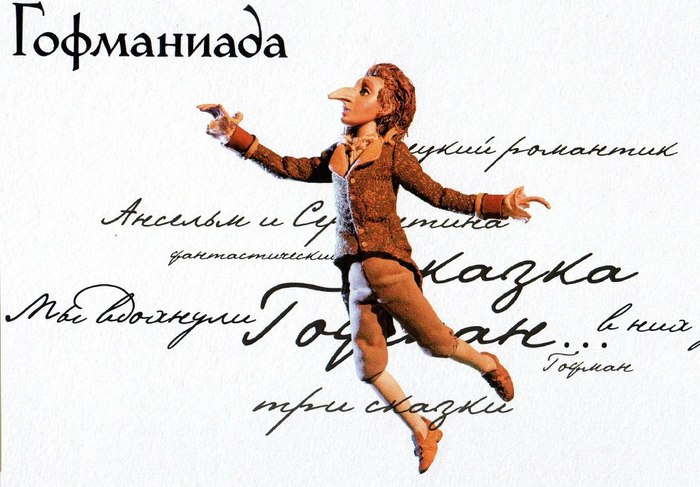 Гофманиада
романтик
Ансельм и
фантастический
сказка
Мы вдохнули Гофман... в них
Гофман
три сказки